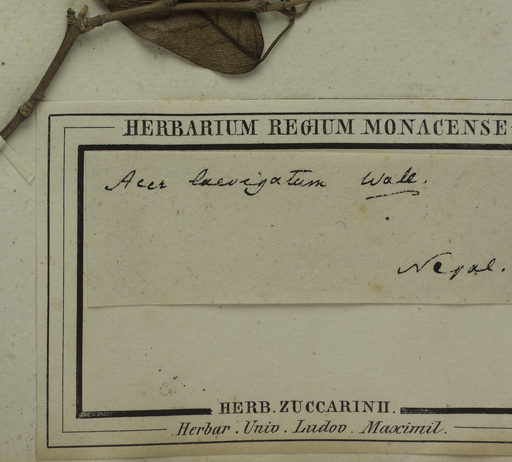 HERBARIUM REGIUM MONACENSE
Acer laevigatum Wall.
Nepal.
HERB. ZUCCARINII.
Herbar. Univ. Ludov. Maximil.